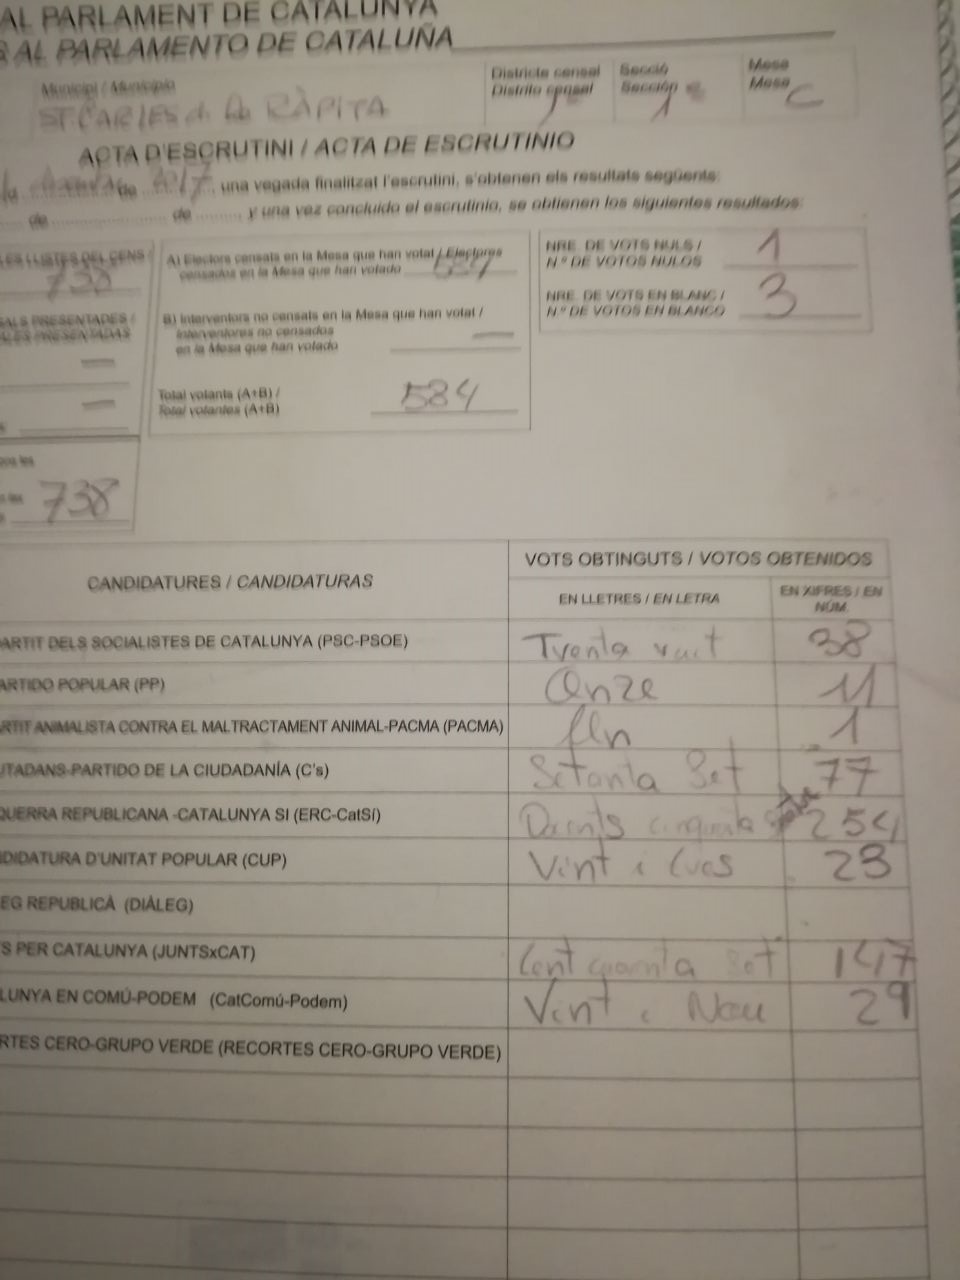 AL PARLAMENT DE CATALUNYA
AL PARLAMENTO DE CATALUÑA
Municipi / Municipio
ST CARLES de la RÀPITA
Districte censal
Distrito censal
1
Secció
Sección
1
Mesa
Mesa
C
ACTA D'ESCRUTINI / ACTA DE ESCRUTINIO
de 2017, una vegada finalitzat l'escrutini, s'obtenen els resultats següents:
de de , y una vez concluido el escrutinio, se obtienen los siguientes resultados:
738
A) Electors censats en la Mesa que han votat / Electores
censados en la Mesa que han votado 584
B) Interventors no censats en la Mesa que han votat /
Interventores no censados
en la Mesa que han votado —
Total votants (A+B) /
Total votantes (A+B) 584
NRE. DE VOTS NULS /
N.º DE VOTOS NULOS 1
NRE. DE VOTS EN BLANC /
N.º DE VOTOS EN BLANCO 3
PRESENTADES /
PRESENTADAS
—
—
738
CANDIDATURES / CANDIDATURAS
VOTS OBTINGUTS / VOTOS OBTENIDOS
EN LLETRES / EN LETRA
EN XIFRES / EN
NÚM.
ARTIT DELS SOCIALISTES DE CATALUNYA (PSC-PSOE) Trenta vuit 38
ARTIDO POPULAR (PP) Onze 11
RTIT ANIMALISTA CONTRA EL MALTRACTAMENT ANIMAL-PACMA (PACMA) Un 1
UTADANS-PARTIDO DE LA CIUDADANÍA (C's) Setanta Set 77
QUERRA REPUBLICANA -CATALUNYA SI (ERC-CatSí) Docents cinquanta 254
DIDATURA D'UNITAT POPULAR (CUP) Vint i tres 23
EG REPUBLICÀ (DIÀLEG)
S PER CATALUNYA (JUNTSxCAT) Cent quaranta set 147
LUNYA EN COMÚ-PODEM (CatComú-Podem) Vint i Nou 29
RTES CERO-GRUPO VERDE (RECORTES CERO-GRUPO VERDE)